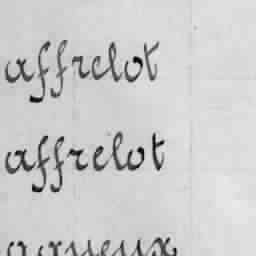 affrelot
affrelot